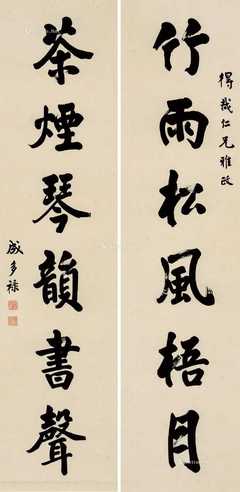 得莪仁兄雅政
竹雨松風梧月
茶煙琴韻書聲
成多祿